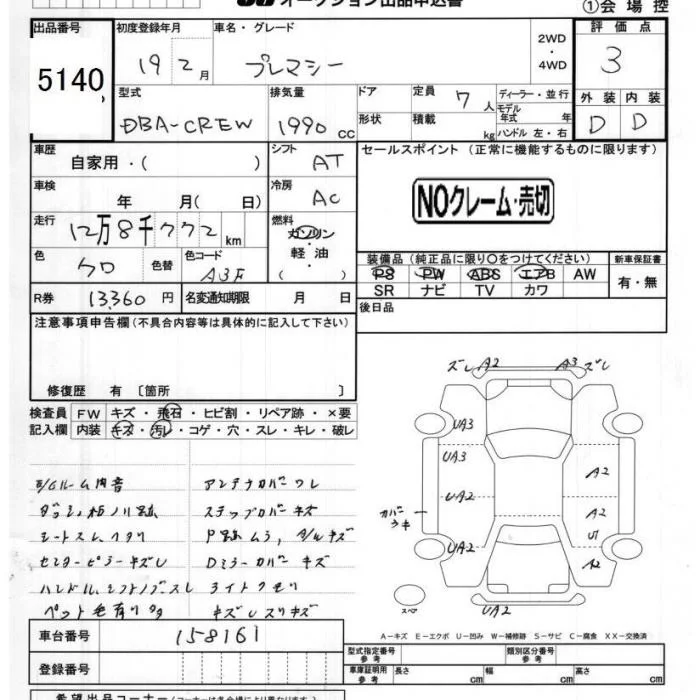 オークション出品申込書 ①会場控
出品番号 初度登録年月 車名・グレード 2WD・4WD 評価点
5140 19 2月 プレマシー 3
型式 排気量 ドア 定員 7人 ディーラー・並行 外装 内装
DBA-CREW 1990cc 形状 積載 kg モデル年式 年 ハンドル 左・右 D D
車歴 自家用・( ) シフト AT セールスポイント (正常に機能するものに限ります)
車検 年 月( 日) 冷房 AC NOクレーム・売切
走行 12万8千772km 燃料 ガソリン・軽油 ( )
色 クロ 色替 色コード A3F 装備品 (純正品に限り○をつけてください) 新車保証書
PS PW ABS エアB AW 有・無
SR ナビ TV カワ
R券 13360円 名変通知期限 月 日 後日品
注意事項申告欄 (不具合内容等は具体的に記入して下さい)
修復歴 有 〔箇所 〕
検査員 FW キズ・飛石・ヒビ割・リペア跡・×要
記入欄 内装 キズ・汚レ・コゲ・穴・スレ・キレ・破レ
ズレ A2 A3 ズレ
UA3
UA3 A2
UA2 A2
カバーウキ U1
UA2 A2
スペア UA2
ルーム内音 アンテナカバーワレ
ダッシュ板ノリ跡 ステップカバーキズ
シートスレ、ヘタリ
センターピラーキズレ Dミラーカバーキズ
ハンドル、シフトノブスレ ライトクモリ
ペット毛有リ キズレスリキズ
A-キズ E-エクボ U-凹み W-補修跡 S-サビ C-腐食 XX-交換済
車台番号 158161 型式指定番号 参考 類別区分番号 参考
登録番号 車庫証明用 参考 長さ cm 幅 cm 高さ cm
希望出品コーナー